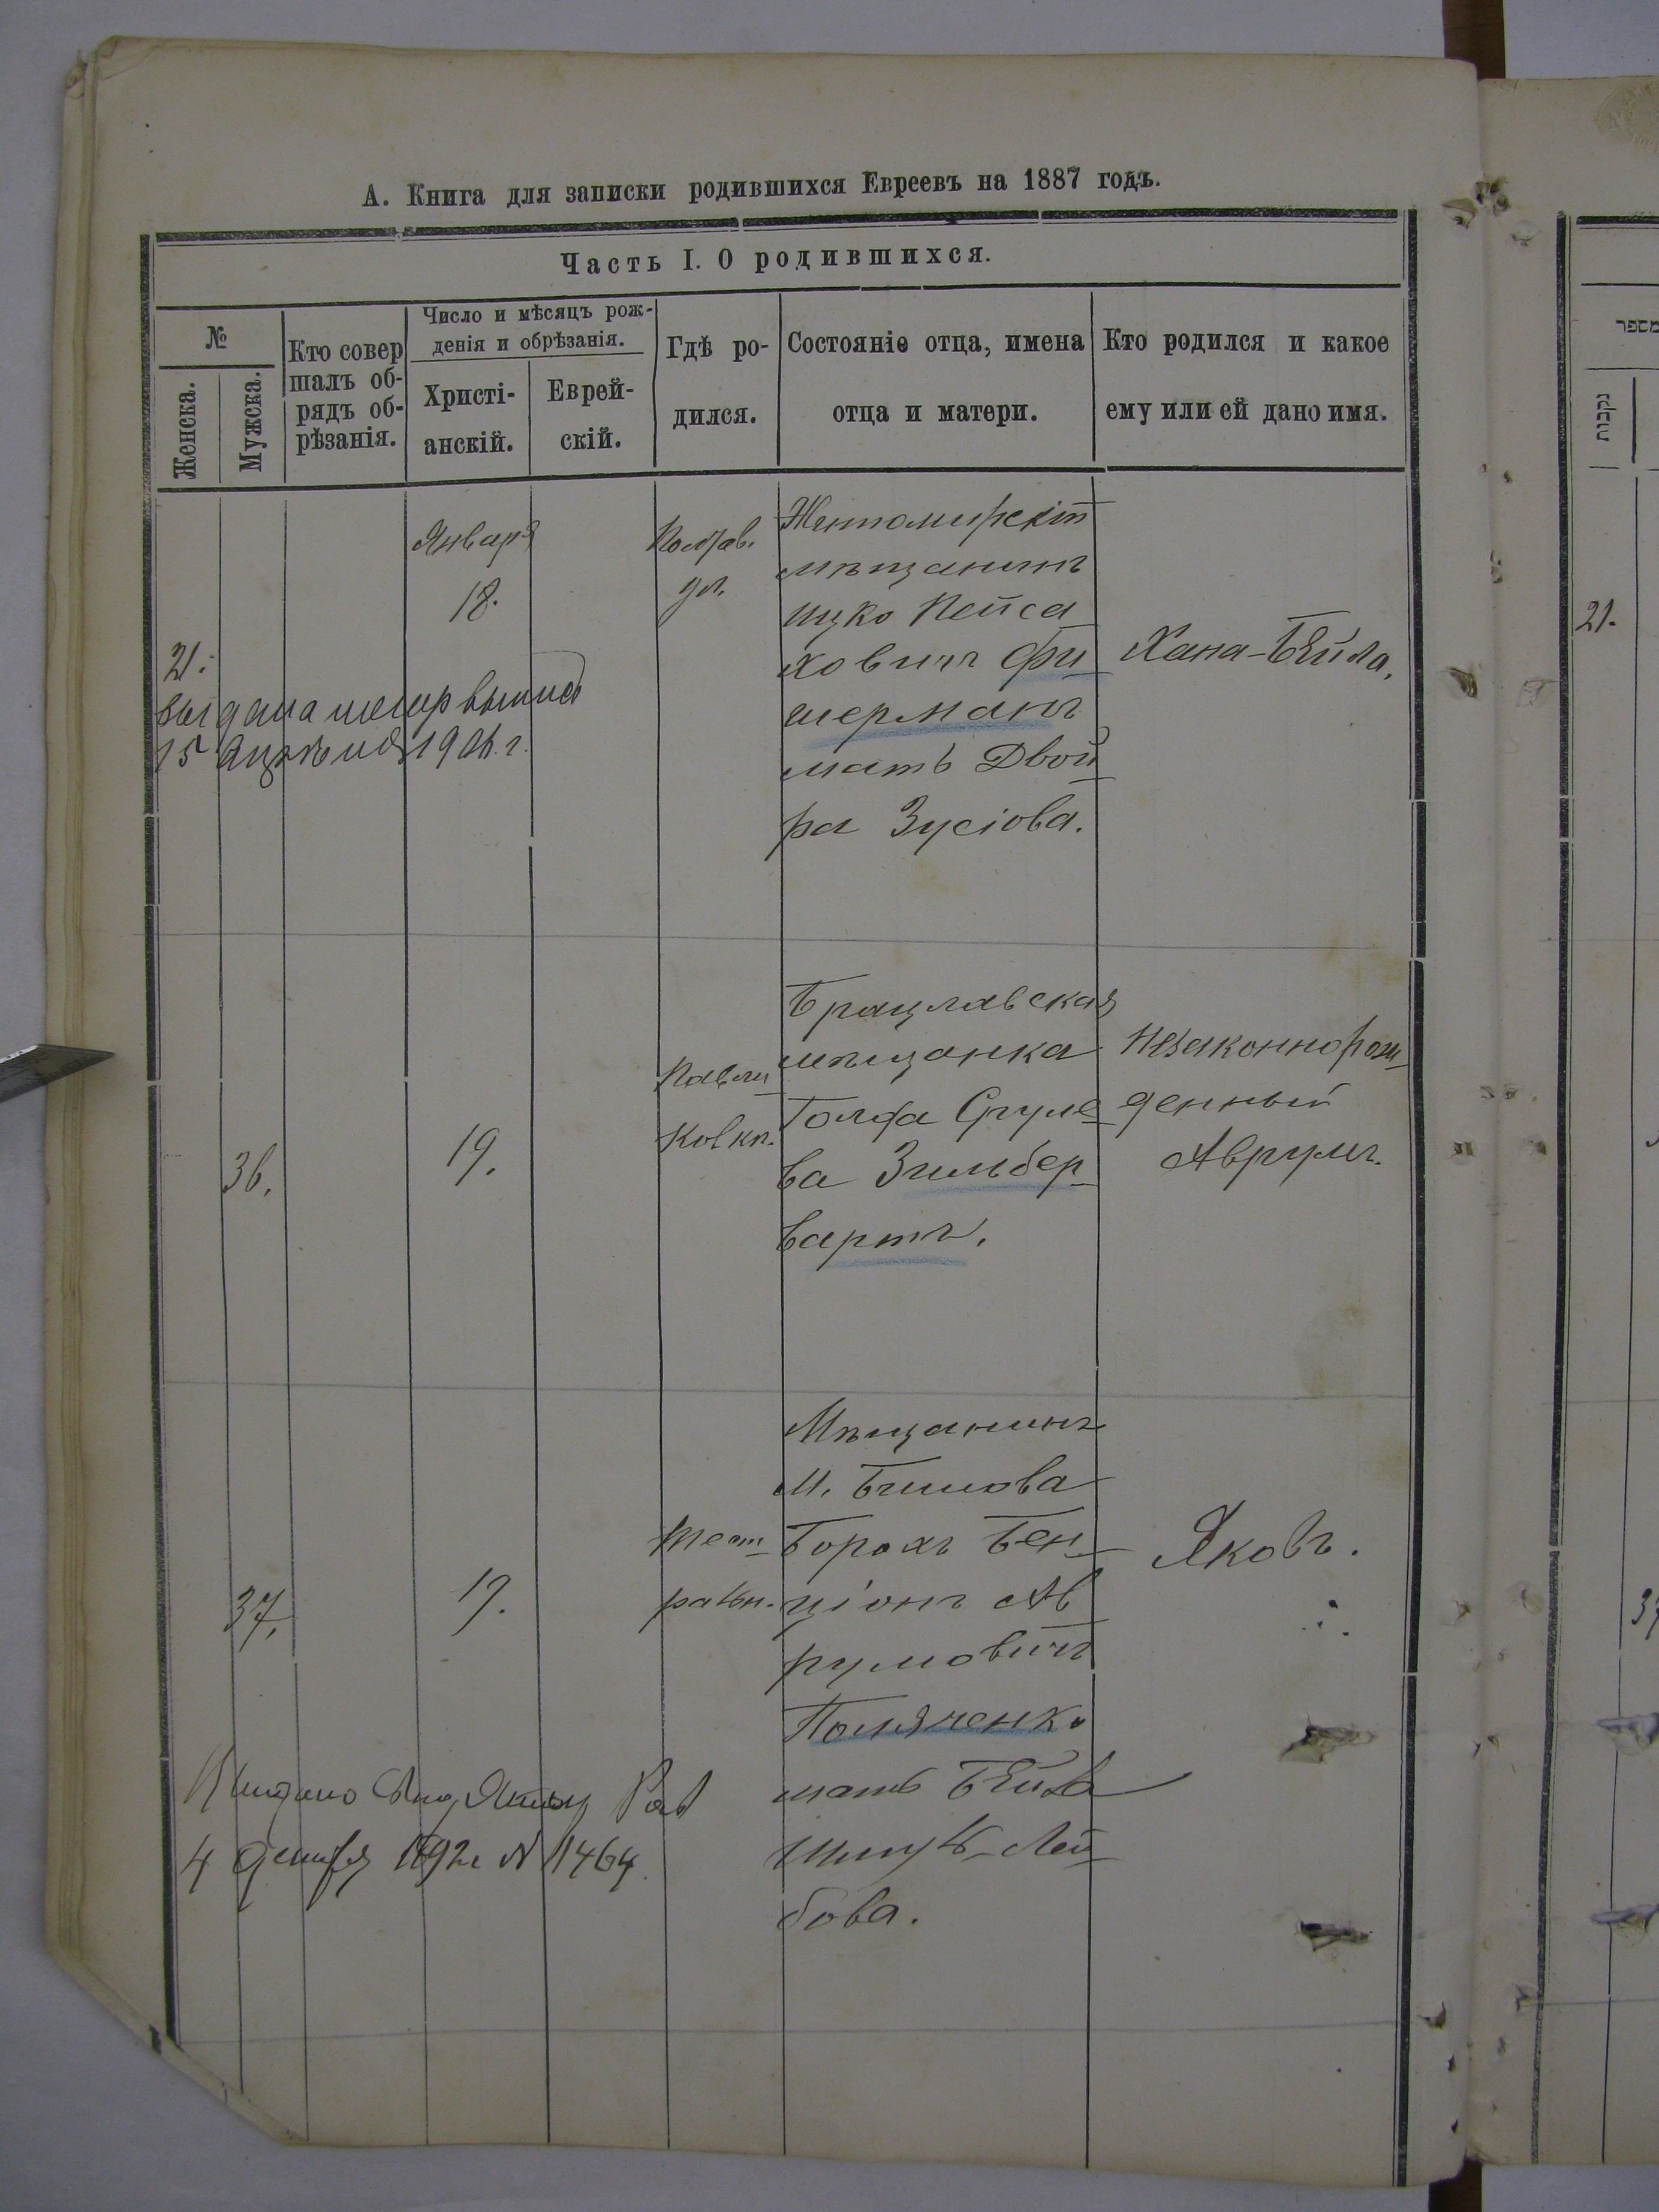 А. Книга для записки родившихся Евреевъ на 1887 годъ.
Часть I. О родившихся.
№
Женска.
Мужска.
Кто совер
шалъ об-
рядъ об-
рѣзанія.
Число и мѣсяцъ рож-
денія и обрѣзанія.
Христі-
анскій.
Еврей-
скій.
Гдѣ ро-
дился.
Состояніе отца, имена
отца и матери.
Кто родился и какое
ему или ей дано имя.
21.
Января
18.
ул.
Житомирскій
мѣщанинъ
Ицко Пейса
ховичъ Фи
шерманъ
мать Двой
ра Зусіова.
Хана-Бейла.
выдана
15
36.
19.
Брацлавская
мѣщанка
Голда Сруле
ва Зильбер
вартъ.
Незаконнорож
денный
Аврумъ.
37.
19.
Мѣщанинъ
м.
Борохъ Бен
ціонъ Ав
румовичъ
Поляченко
мать Бейла
Лей
бова.
Яковъ.
4 1892 г № 1464.
מספר
נקבות
21.